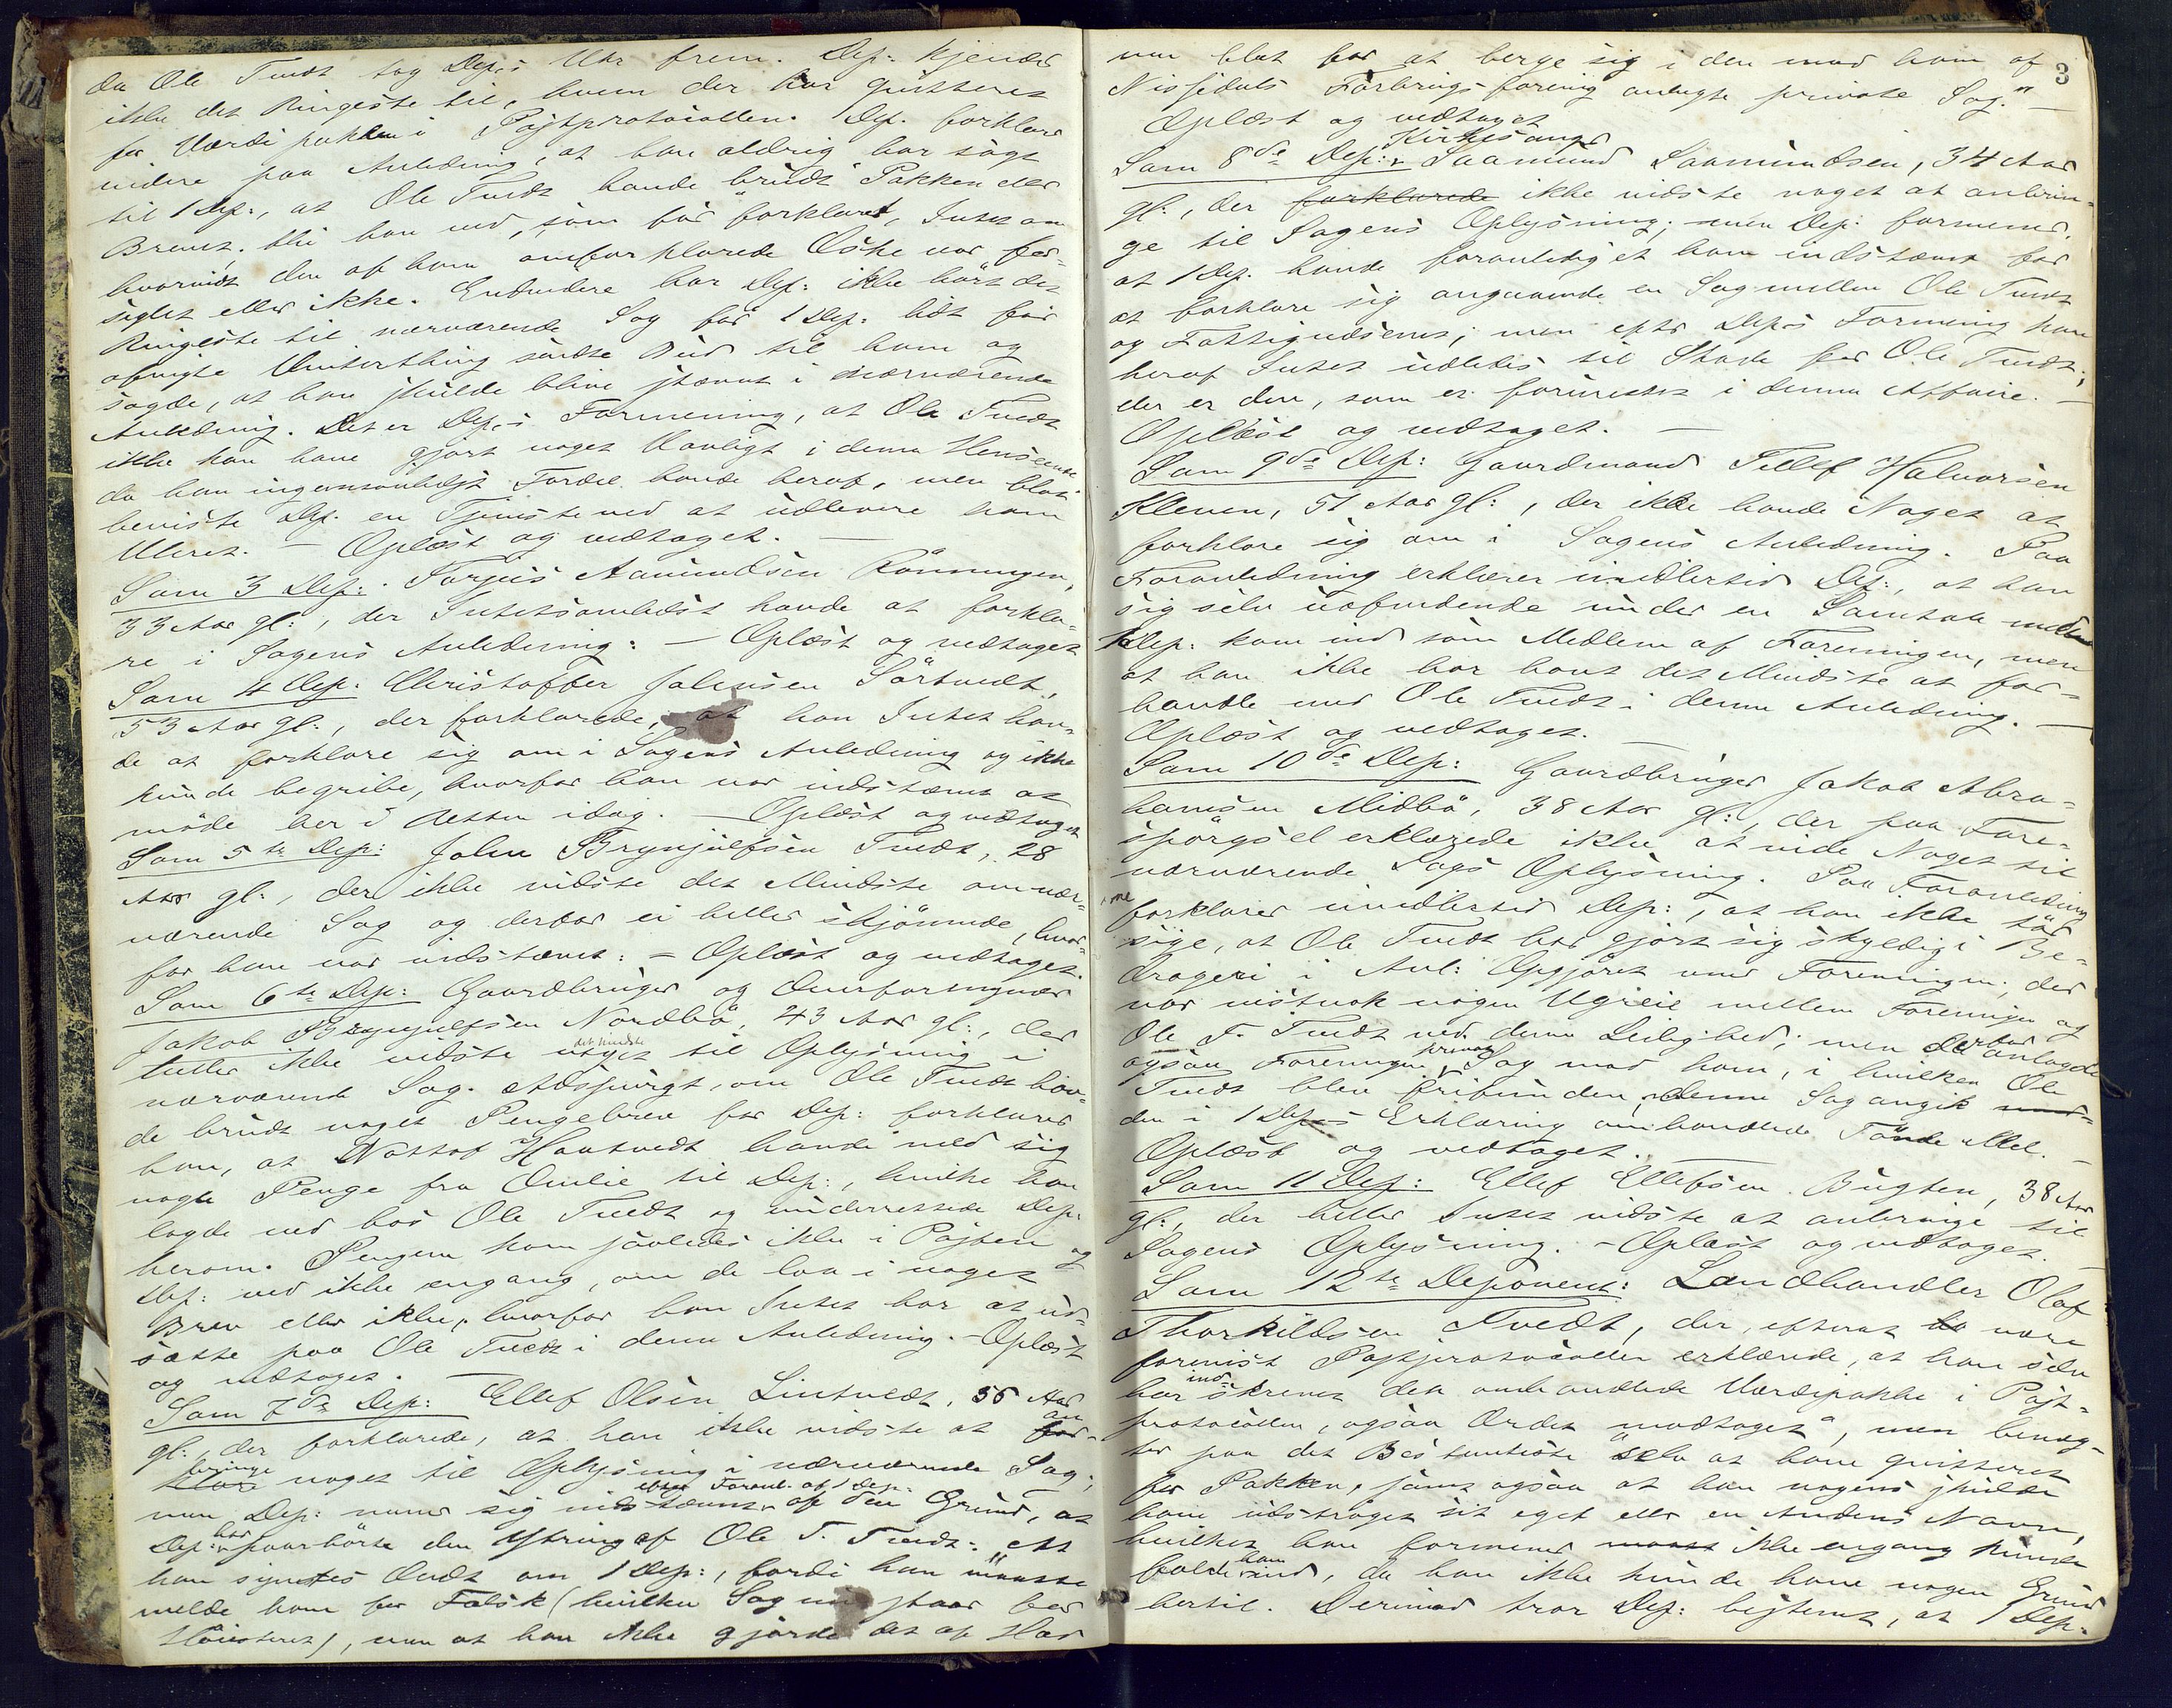 da Ole Tvedt tog Dep.s Uhr frem. Dep: kjender
ikke det Ringeste til, hvem der har quitteret
for Værdipakken i Postprotocollen. Dep. forklarer
videre paa Anledning, at han aldrig har sagt
til 1 Dep:, at Ole Tvedt havde brudt Pakken eller
Brevet, thi han ved, som før forklaret, Intet om
hvorvidt den af ham omforklarede Æske var for-
seglet eller ikke. Endvidere har Dep: ikke hørt det
Ringeste til nærværende Sag før 1 Dep: lidt før
afvigte Vinterthing sendte Bud til ham og
sagde, at han skulde blive stævnt i nærværende
Anledning. Det er Dep.s Formening, at Ole Tvedt
ikke kan have gjort noget Ulovligt i denne Henseende
da han ingensomhelst Fordel havde heraf, men blot
beviste Dep. en Tjeneste ved at udlevere ham
Uhret. — Oplæst og vedtaget. —
Som 3 Dep: Torjus Aanundsen Rønningen,
33 Aar gl:, der Intetsomhelst havde at forkla-
re i Sagens Anledning: — Oplæst og vedtaget
Som 4 Dep: Christoffer Johnsen Sørtvedt,
53 Aar gl:, der forklarede, at han Intet hav-
de at forklare sig om i Sagens Anledning og ikke
kunde begribe, hvorfor han var indstævnt at
møde her i Retten idag. — Oplæst og vedtaget
Som 5te Dep: John Brynjulfsen Tvedt, 28
Aar gl:, der ikke vidste det Mindste om nær-
værende Sag og derfor ei heller skjønnede, hvor-
for han var indstævnt: — Oplæst og vedtaget.
Som 6te Dep: Gaardbruger og Overformynder
Jakob Brynjulfsen Nordbø, 43 Aar gl:, der
heller ikke vidste det Mindste til Oplysning i
nærværende Sag. Adspurgt, om Ole Tvedt hav-
de brudt noget Pengebrev for Dep: forklarer
han, at Nottof Hovtvedt havde med sig
nogle Penge fra til Dep:, hvilke han
lagde ned hos Ole Tvedt og underrettede Dep.
herom. Pengene kom saaledes ikke i Posten og
Dep: ved ikke engang, om de laa i noget
Brev eller ikke, hvorfor han Intet har at ud-
sætte paa Ole Tvedt i denne Anledning. — Oplæst
og vedtaget. —
Som 7de Dep: Ellef Olsen Lintvedt, 55 Aar
gl:, der forklarede, at han ikke vidste at an-
bringe noget til Oplysning i nærværende Sag;
men Dep: mener sig indstævnt efter Foranl. af 1 Dep. af den Grund, at
Dep: har paahørte den Yttring af Ole T. Tvedt: at
han syntes Ondt om 1 Dep:, fordi han maatte
melde ham for Falsk (hvilken Sag nu staar for
Høiesteret), men at han ikke gjorde det af Had
3
men blot for at berge sig i den mod ham af
Nissedals Forbrugsforening anlagte private Sag." —
Oplæst og vedtaget
Som 8de Dep: Kirkesanger Saamund Saamundsen, 34 Aar
gl:, der forklarede ikke vidste noget at anbrin-
ge til Sagens Oplysning; men Dep: formener,
at 1 Dep. havde foranlediget ham indstævnt for
at forklare sig angaaende en Sag mellem Ole Tvedt
og Fattigvæsenet; men efter Dep.s Formening kan
heraf Intet udledes til Skade for Ole Tvedt;
der er den, som er forurettet i denne Affaire. —
Oplæst og vedtaget. —
Som 9de Dep: Gaardmand Tellef Halvorsen
Kleven, 51 Aar gl:, der ikke havde Noget at
forklare sig om i Sagens Anledning. Paa
Foranledning erklærer imidlertid Dep:, at han
sig selv uafvidende under en Samtale mellem
1 Dep: kom ind som Medlem af Foreningen, men
at han ikke har havt det Mindste at for-
handle med Ole Tvedt i denne Anledning. —
Oplæst og vedtaget. —
Som 10de Dep: Gaardbruger Jakob Abra-
hamsen Midbø, 38 Aar gl:, der paa Fore-
spørgsel erklærede ikke at vide Noget til
nærværende Sags Oplysning. Paa Foranledning
forklarer imidlertid Dep:, at han ikke tør
sige, at Ole Tvedt har gjort sig skyldig i Be-
drageri i Anl: Opgjøret med Foreningen; der
var vistnok nogen Ugreie mellem Foreningen og
Ole T. Tvedt ved denne Leilighed; men derfor anlagde
ogsaa Foreningen privat Sag mod ham, i hvilken Ole
Tvedt blev frifunden; denne Sag angik
den i 1 Dep.s Erklæring omhandlede Tønde Mel. —
Oplæst og vedtaget. —
Som 11 Dep: Ellef Ellefsen Bugten, 38 Aar
gl:, der heller Intet vidste at anbringe til
Sagens Oplysning. — Oplæst og vedtaget. —
Som 12te Deponent: Landhandler Olaf
Thorkildsen Tvedt, der, efterat være
forevist Postprotocollen erklærede, at han selv
har indskrevet den omhandlede Værdipakke i Post-
protocollen, ogsaa Ordet "modtaget", men benæg-
ter paa det Bestemteste selv at have quitteret
for Pakken, samt ogsaa at han nogens skulde
have udstrøget sit eget eller en Andens Navn,
hvilket han formener ikke engang kunde
falde ham ind, da han ikke kunde have nogen Grund
hertil. Derimod tror Dep: bestemt, at 1 Dep.